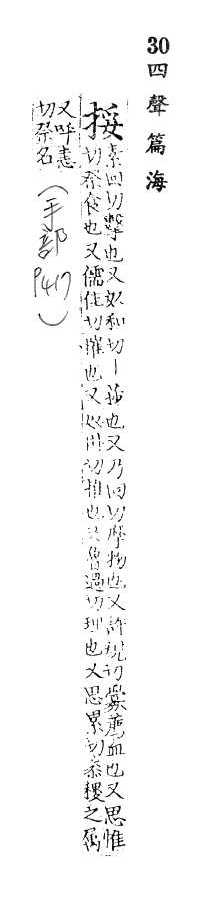 30 四聲篇海
挼
素回切擊也又奴和切丨莎也又乃回切摩物也又許規切釁薦血也又思惟
切祭食也又儒佳切摧也又切推也又魯過切理也又思累切黍稷之屬
又呼恚
切祭名
(手部 P417)